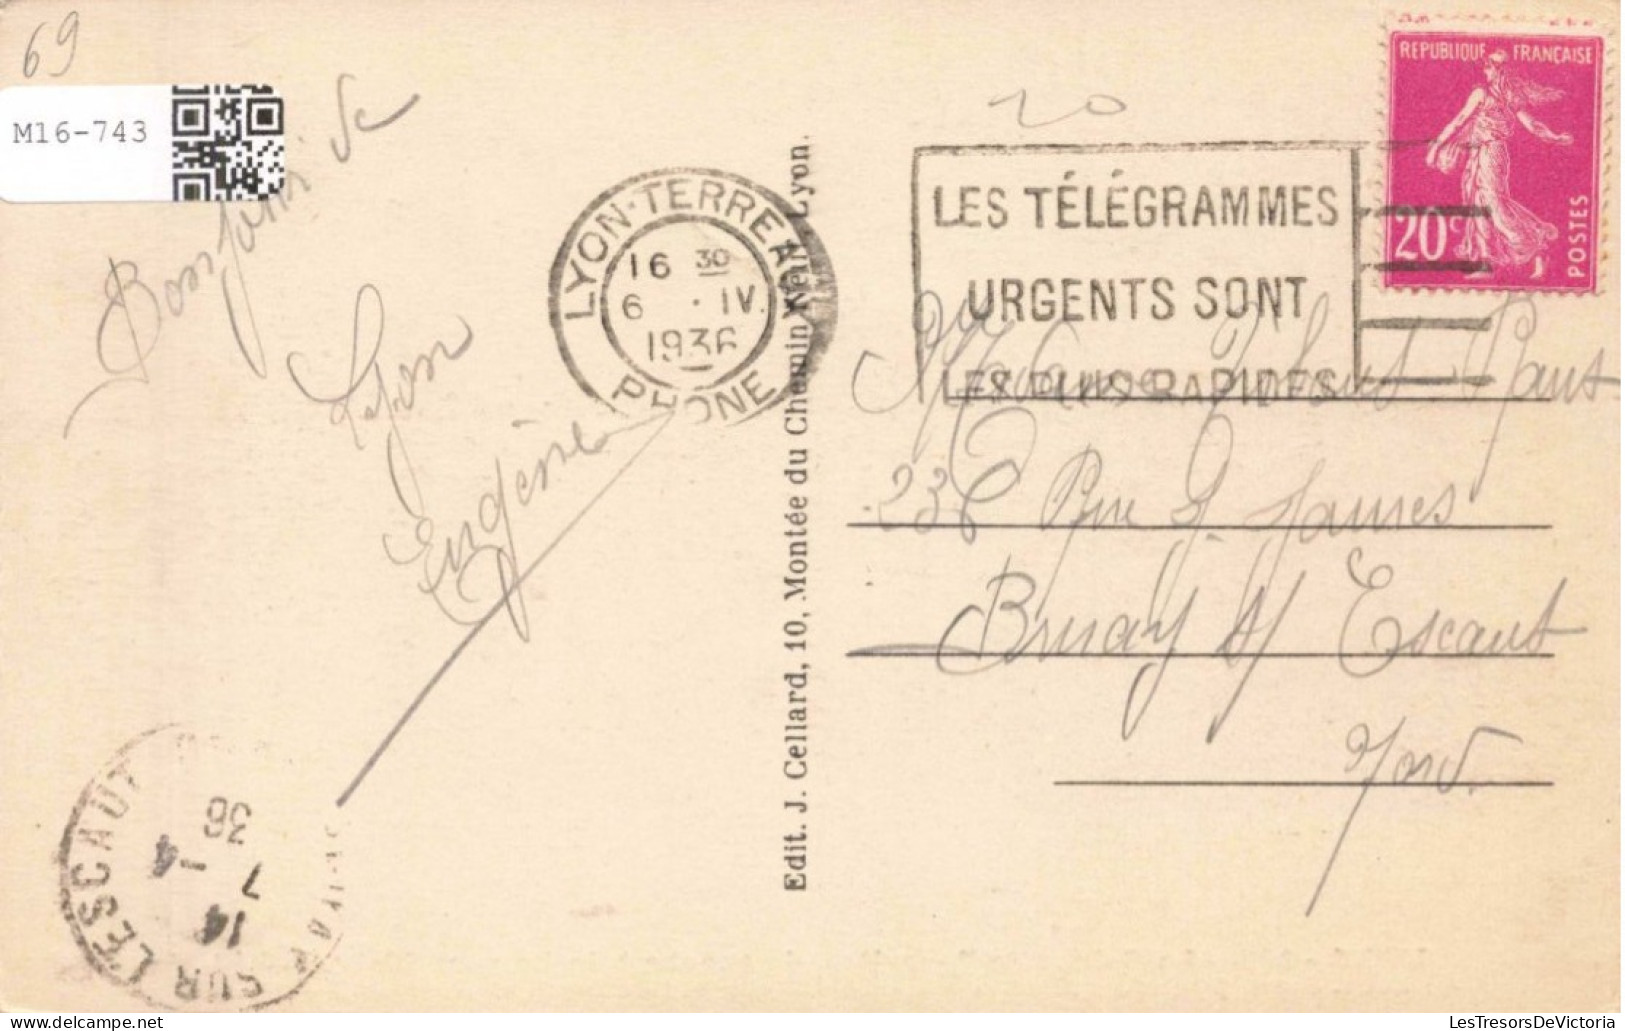 69
M16-743
Bonjour de
Lyon
Eugène
LYON-TERREAUX
16 30
6 . IV.
1936
RHONE
Edit. J. Cellard, 10, Montée du Chemin Neuf, Lyon.
20
LES TÉLÉGRAMMES
URGENTS SONT
LES PLUS RAPIDES
REPUBLIQUE FRANÇAISE
20c
POSTES
Madame
236 Rue J. Jaures
Bruay s/ Escaut
Nord.
SUR L'ESCAUT
14
7 -4
36
LesTresorsDeVictoria
www.delcampe.net